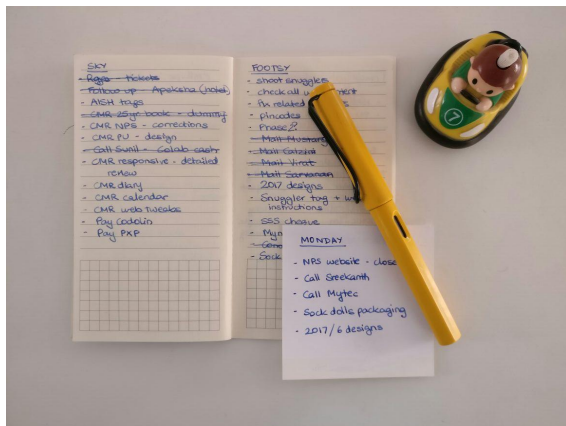 SKY
- Raga - tickets
- Follow up - Apeksha (hotel)
- AISH tags
- CMR 25yr book - dummy
- CMR NPS - corrections
- CMR PU - design
- Call Sunil - Colab cash
- CMR responsive - detailed
review
- CMR diary
- CMR calendar
- CMR web tweaks
- Pay Codolin
- Pay PXP
FOOTSY
- shoot snuggles
- check all
- Fix related
- pincodes
- Phase 2
- Mail Mustang
- Mail
- Mail Virat
- Mail Saravanan
- 2017 designs
- Snuggler tag +
instructions
- SSS
- Sock
MONDAY
- NPS website - close
- Call Sreekanth
- Call Mytec
- Sock dolls packaging
- 2017/6 designs
7